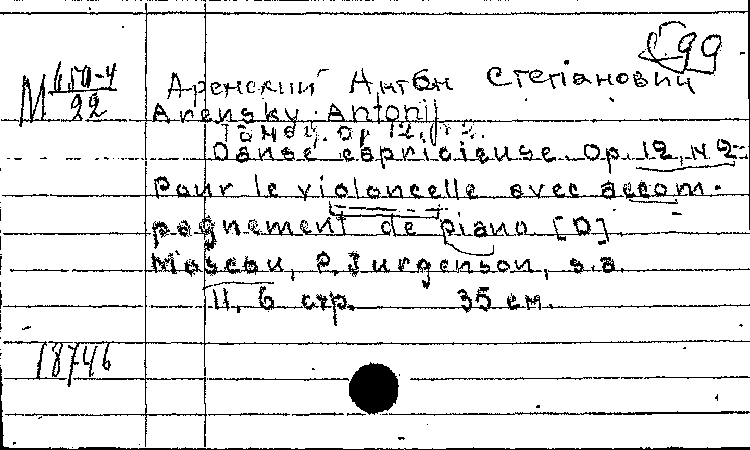 99
М 650-4
22
Аренский Антон Степанович
Arensky Antonij
Танец. Ор 12, № 2.
Danse capricieuse. Op. 12, N 2
pour le violoncelle avec accom-
pagnement de piano [D].
Moscou, P. Jurgenson, s.a.
11, 6 стр. 35 см.
18746